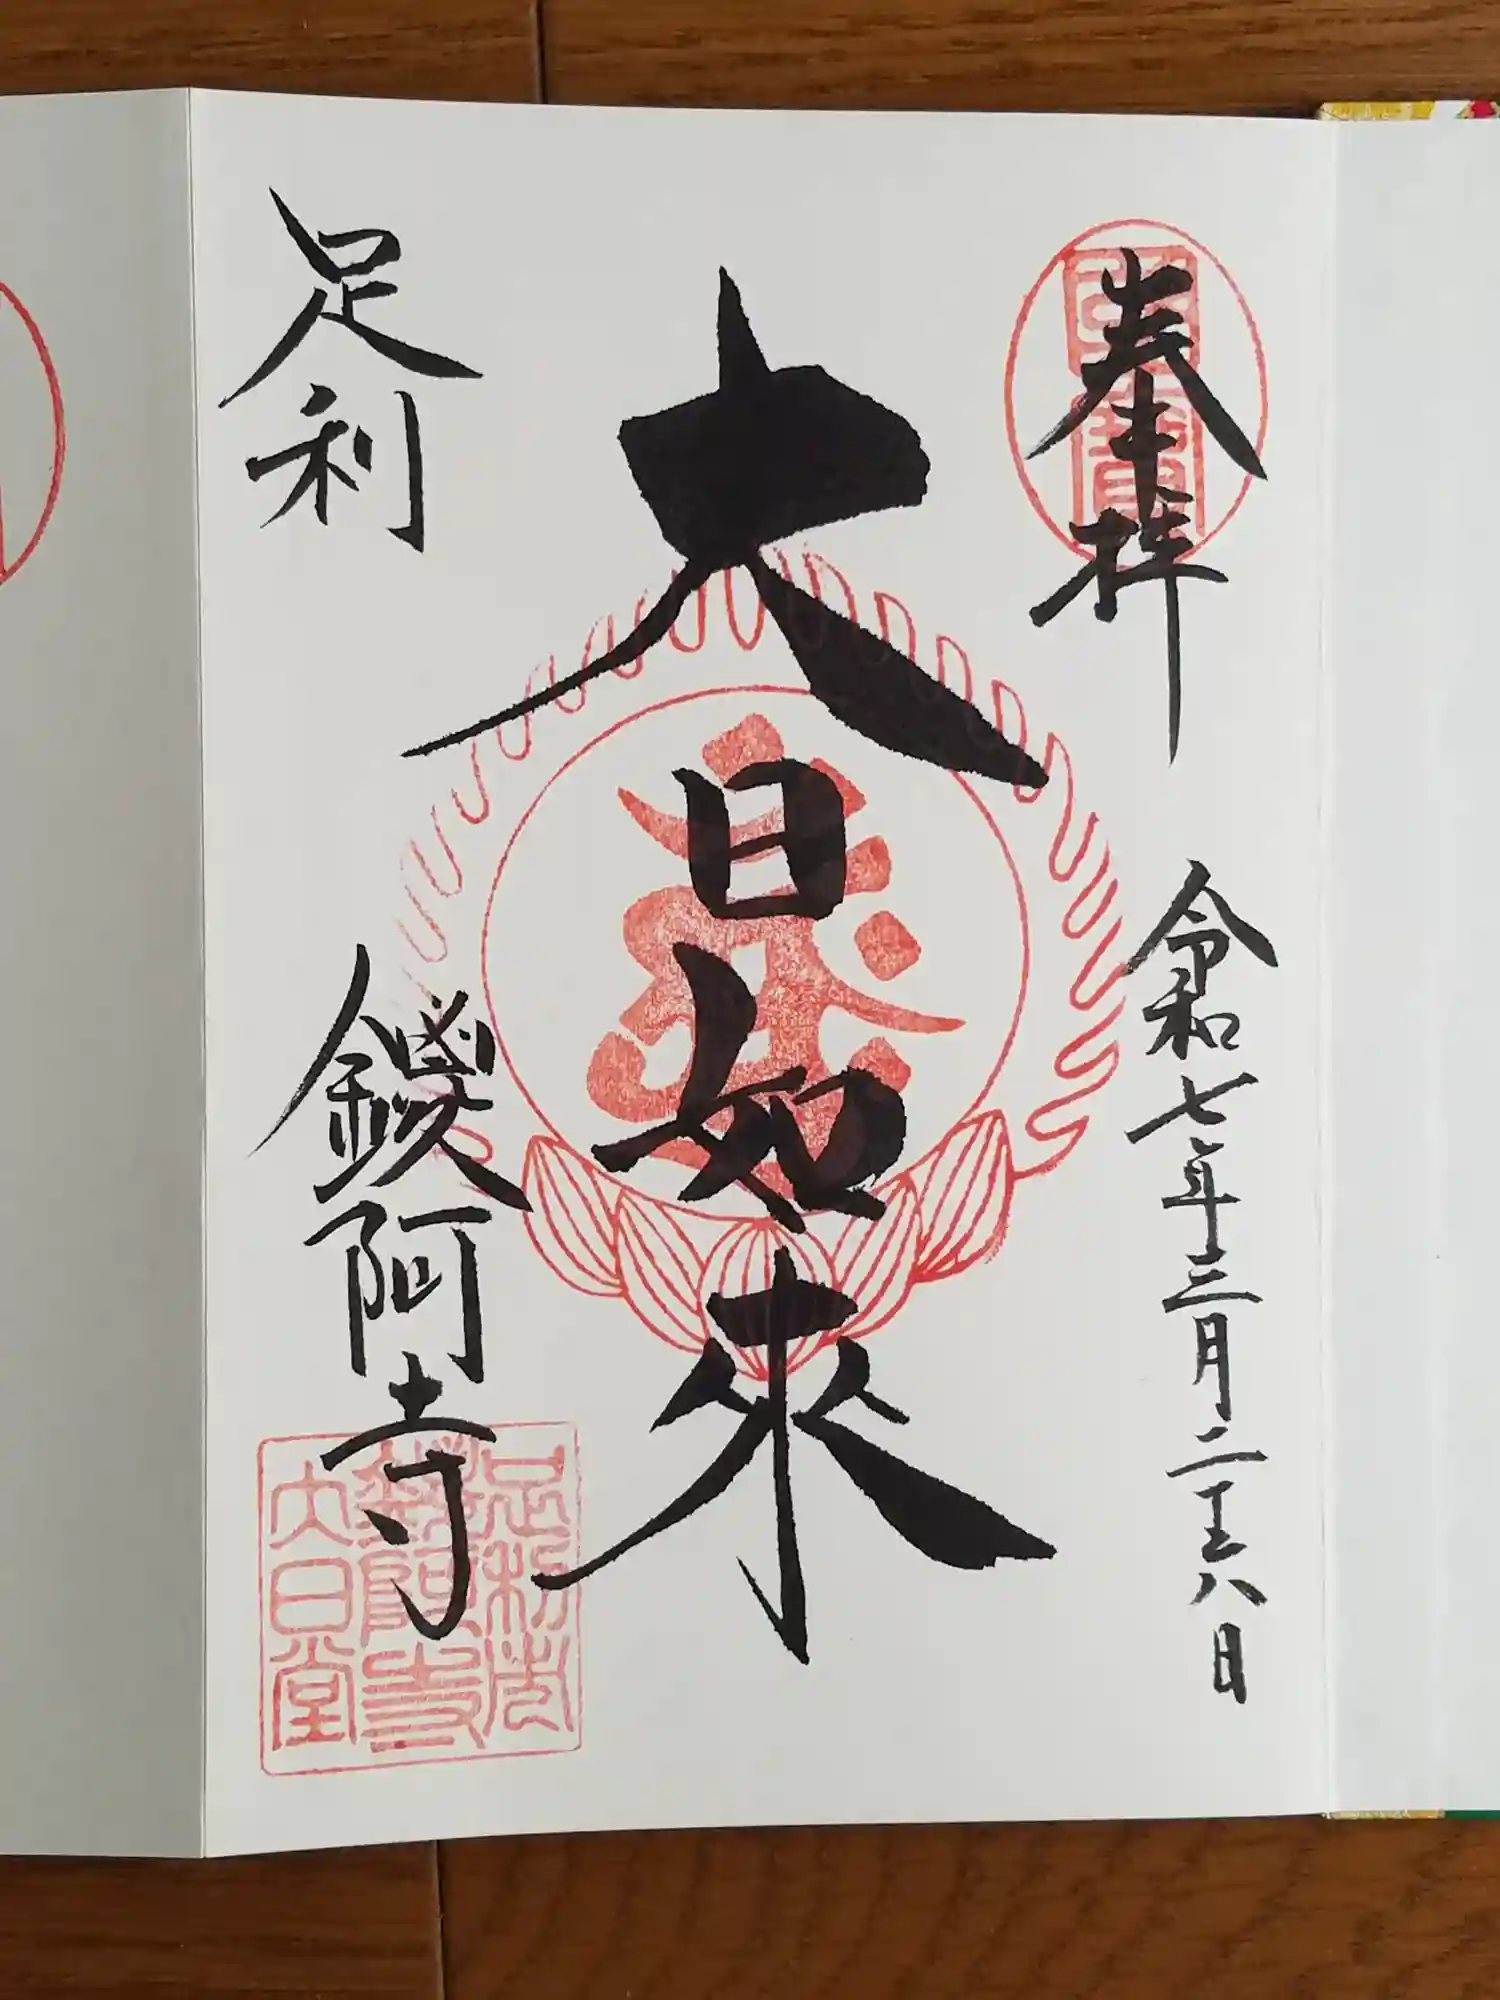 奉拝
令和七年三月二十八日
大日如來
足利
鑁阿寺
足利荘
鑁阿寺
大日堂